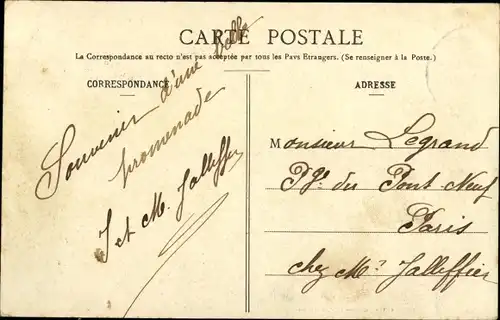 CARTE POSTALE
La Correspondance au recto n'est pas acceptée par tous les Pays Etrangers. (Se renseigner à la Poste.)
CORRESPONDANCE
Souvenir d'une belle
promenade
J et M. Jalliffier
ADRESSE
Monsieur Legrand
Pge du Pont Neuf
Paris
chez Mr Jalliffier